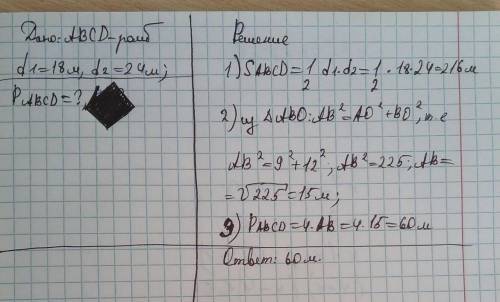 Дано: ABCD-ромб
d1=18м, d2=24м;
PABCD=?,
Решение
1) SABCD=1/2 d1·d2=1/2·18·24=216м
2) из ΔABO: AB²=AO²+BO², т.е
AB²=9²+12²; AB²=225; AB=
=√225=15м;
3) PABCD=4·AB=4·15=60м
Ответ: 60м.